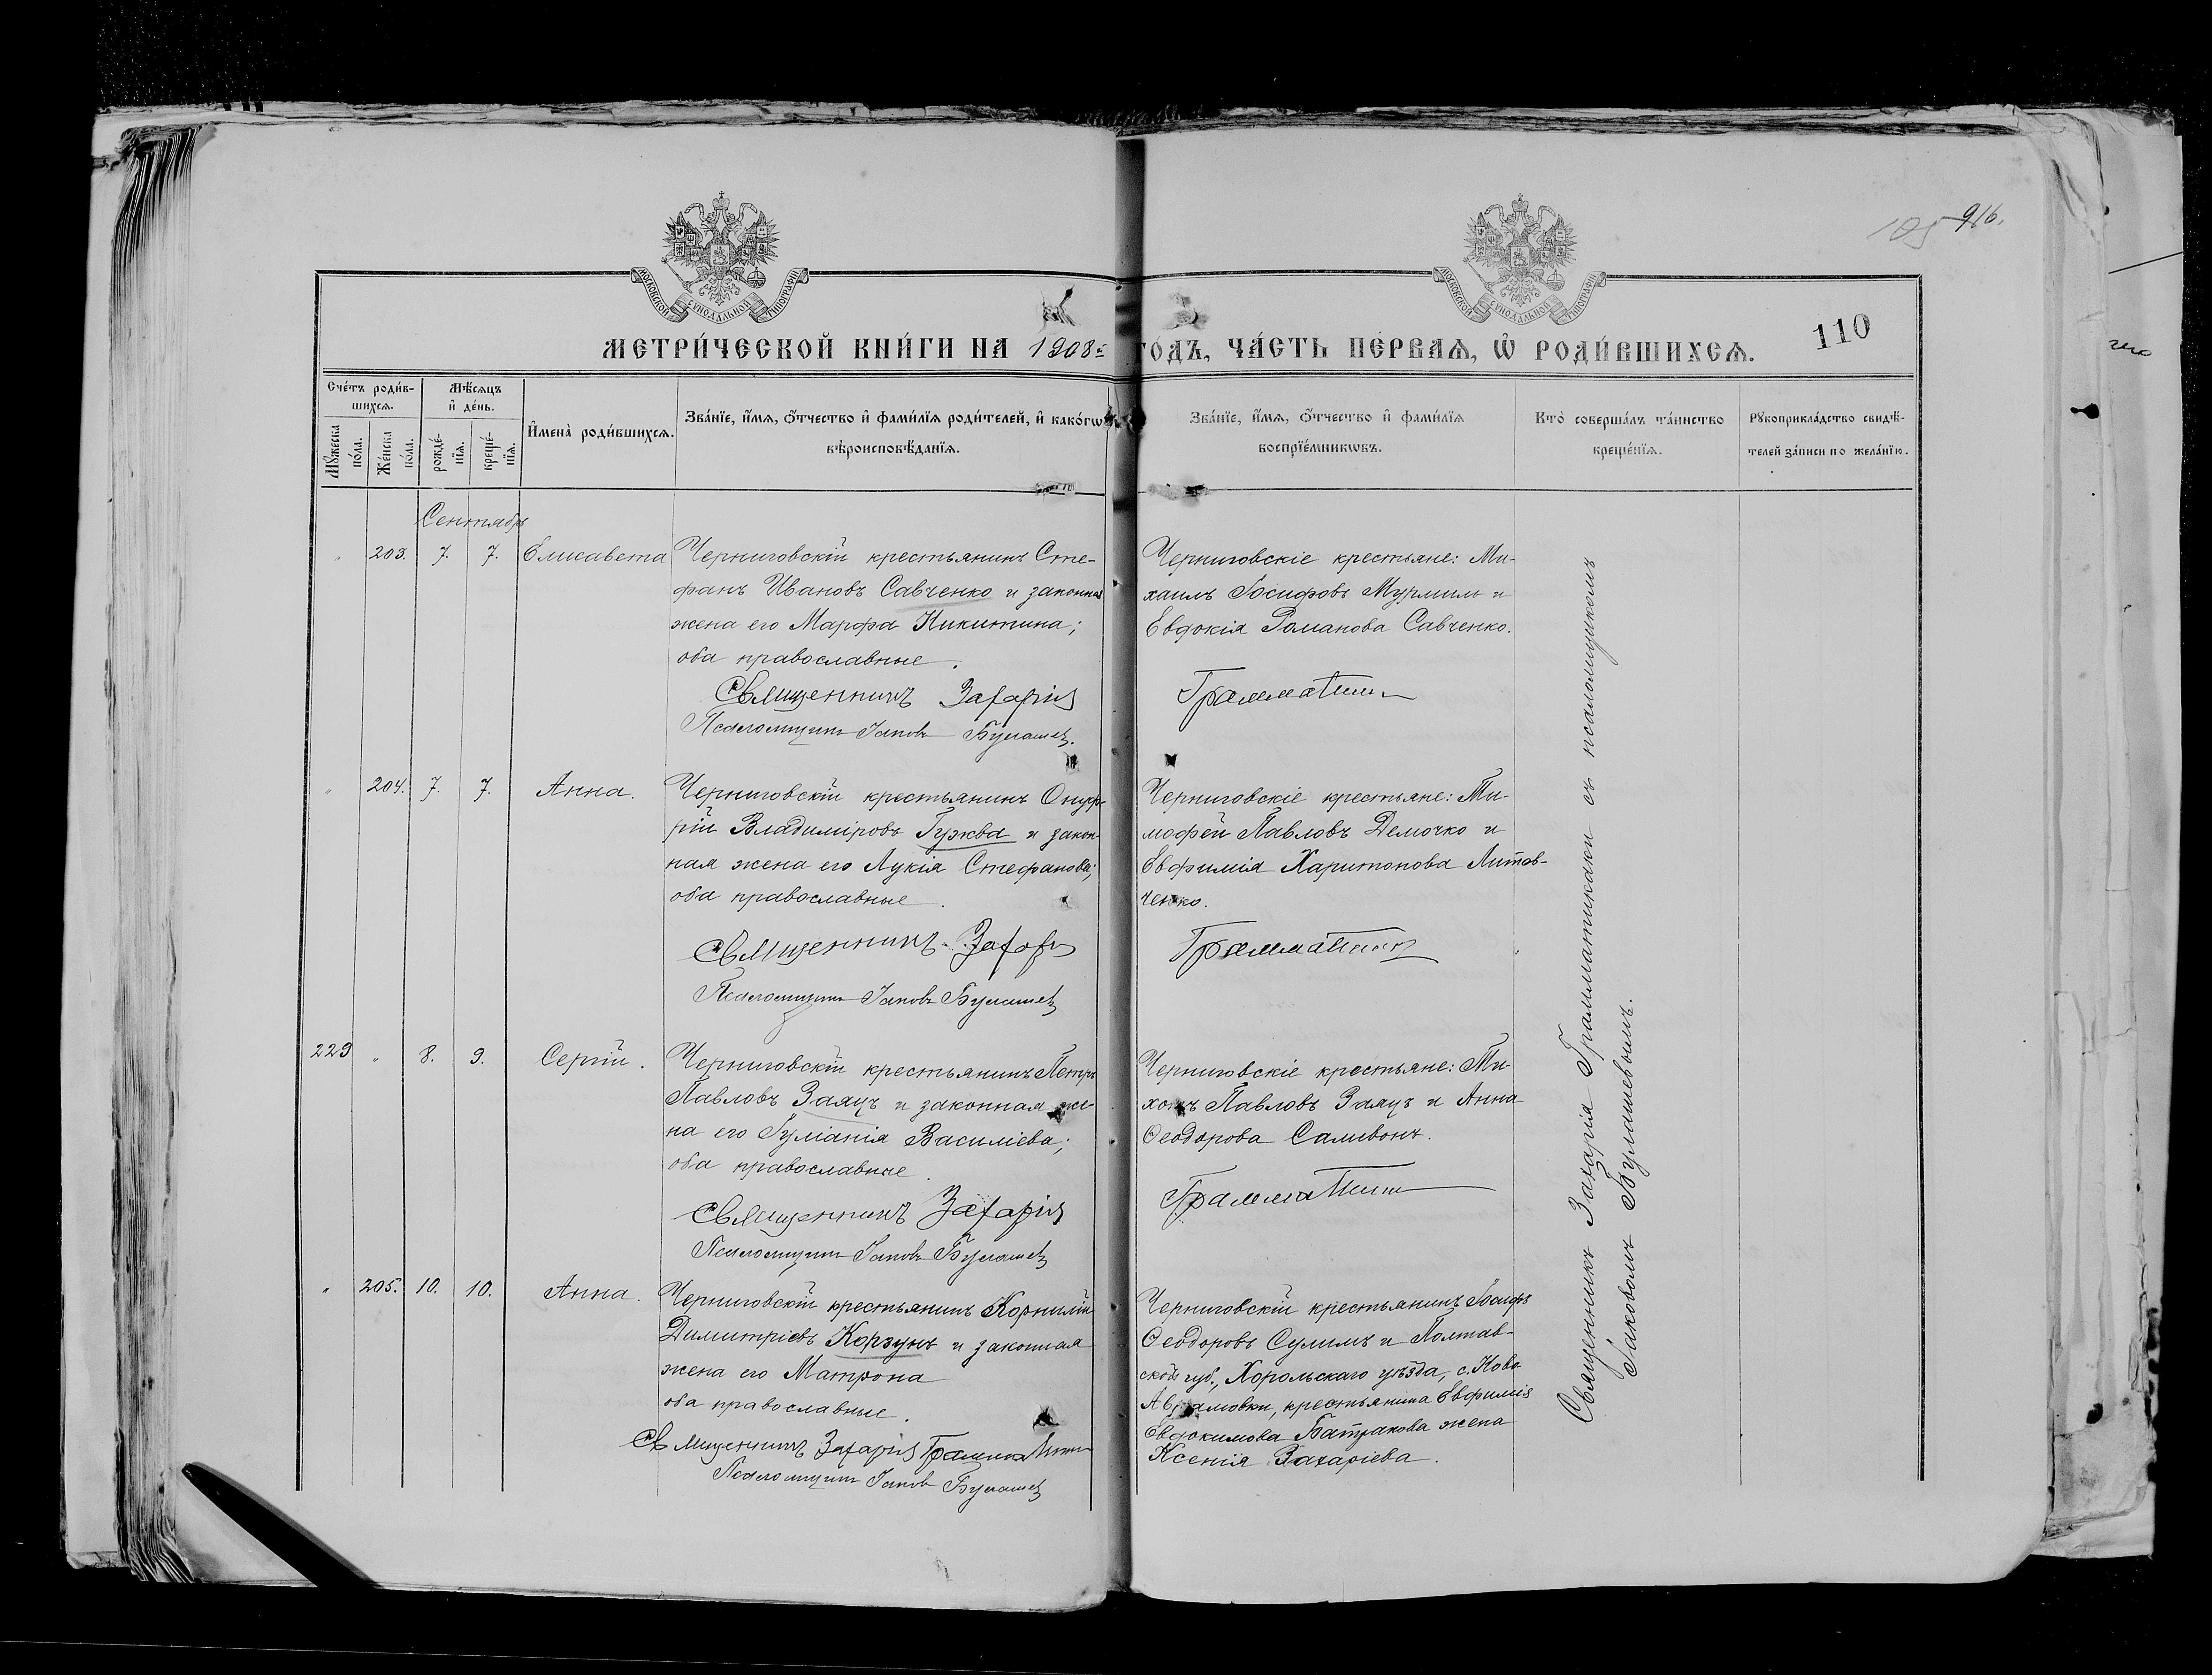 105 916.
МОСКОВСКОЙ СѴНОДАЛЬНОЙ ТИПОГРАФІИ
МОСКОВСКОЙ СѴНОДАЛЬНОЙ ТИПОГРАФІИ
МЕТРИ́ЧЕСКОЙ КНИ́ГИ НА 1908й ГО́ДЪ, ЧА́СТЬ ПЕ́РВАѦ, Ѡ҆ РОДИ́ВШИХСѦ.
110
Сче́тъ роди́в-
шихсѧ.
Мꙋ́жеска по́ла.
Же́нска по́ла.
Мѣ́сѧцъ
и҆ де́нь.
рожде́-
нїѧ.
креще́-
нїѧ.
И҆мена̀ роди́вшихсѧ.
Зва́нїе, и҆́мѧ, ѻ҆́тчество и҆ фами́лїѧ роди́телей, и҆ како́гѡ
вѣроисповѣ́данїѧ.
Зва́нїе, и҆́мѧ, ѻ҆́тчество и҆ фами́лїѧ
воспрїе́мникѡвъ.
Кто̀ соверша́лъ та́инство
креще́нїѧ.
Рꙋкоприкла́дство свидѣ́-
телей за́писи по жела́нїю.
Сентябрь
" 203. 7. 7. Елисавета
Черниговскій крестьянинъ Сте-
фанъ Ивановъ Савченко и законная
жена его Марфа Никитина;
оба православные.
Священникъ Захарія
Псаломщикъ Іаковъ Булашевъ
Черниговскіе крестьяне: Ми-
хаилъ Іосифовъ и
Евдокія Романова Савченко.
Грамматикъ
" 204. 7. 7. Анна.
Черниговскій крестьянинъ Онуф-
рій Владиміровъ Гужва и закон-
ная жена его Лукія Стефанова;
оба православные.
Священникъ Захарія
Псаломщикъ Іаковъ Булашевъ
Черниговскіе крестьяне: Ти-
мофей Павловъ Демочко и
Евфимія Харитонова Литов-
ченко.
Грамматикъ
229 " 8. 9. Сергій.
Черниговскій крестьянинъ Петръ
Павловъ Заяцъ и законная же-
на его Іуліанія Василіева;
оба православные.
Священникъ Захарія
Псаломщикъ Іаковъ Булашевъ
Черниговскіе крестьяне: Ти-
хонъ Павловъ Заяцъ и Анна
Ѳеодорова Саливонъ.
Грамматикъ
" 205. 10. 10. Анна.
Черниговскій крестьянинъ Корнилій
Димитріевъ Корзунъ и законная
жена его Матрона
оба православные.
Священникъ Захарія Грамматикъ
Псаломщикъ Іаковъ Булашевъ
Черниговскій крестьянинъ Іосифъ
Ѳеодоровъ Сулимъ и Полтав-
ской губ., Хорольскаго уѣзда, с. Ново
Аврамовки, крестьянина Евфимія
Евдокимова Батракова жена
Ксенія Захаріева.
Священникъ Захарія Грамматикаки съ псаломщикомъ
Іаковомъ Булашевымъ.